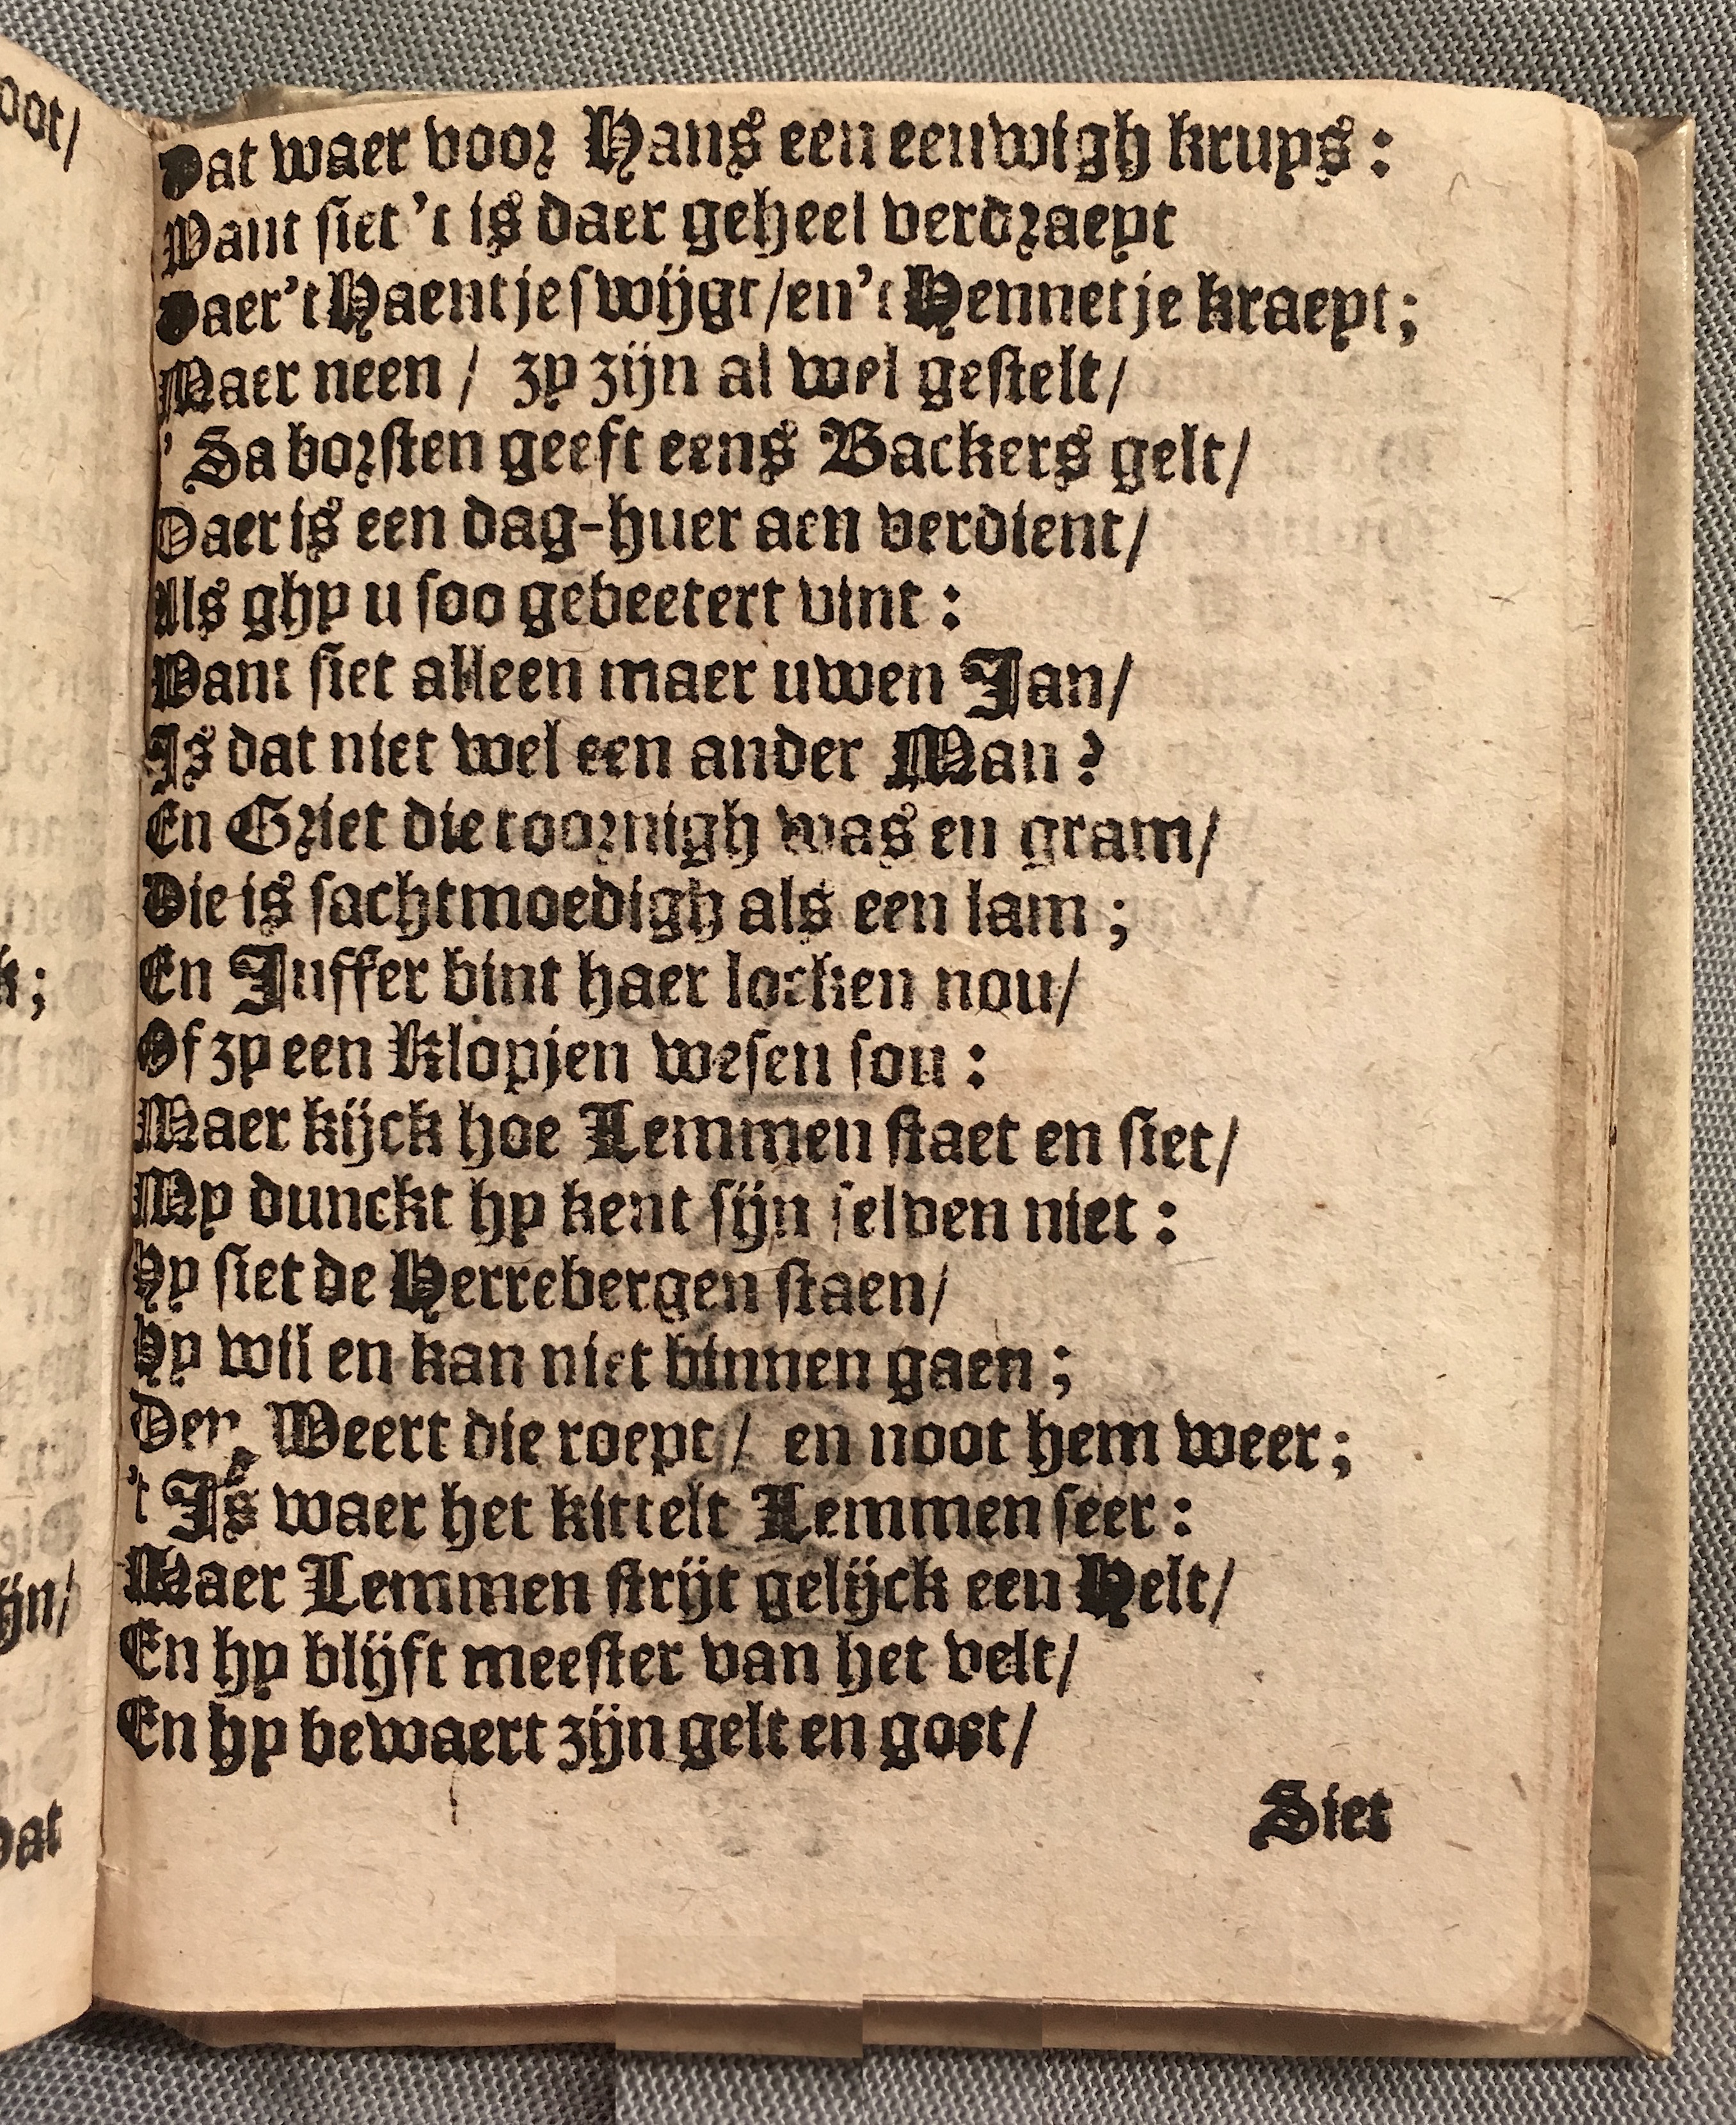 Dat waer voor Hans een eeuwigh kruys:
Want siet 't is daer geheel verdraeyt
Daer 't Haentje swijgt/en 't Hennetje kraeyt;
Maer neen / zy zijn al wel gestelt/
' Sa borsten geeft eens Backers gelt/
Daer is een dag-huer aen verdient/
Als ghy u soo gebeetert vint:
Want siet alleen maer uwen Jan/
Is dat niet wel een ander Man?
En Griet die toornigh was en gram/
Die is sachtmoedigh als een lam;
En Juffer bint haer locken nou/
Of zy een Klopjen wesen sou:
Maer kijck hoe Lemmen staet en siet/
My dunckt hy kent sijn selven niet:
Hy siet de Herrebergen staen/
Hy wil en kan niet binnen gaen;
Den Weert die roept/ en noot hem weer;
't Is waer het kittelt Lemmen seer:
Maer Lemmen strijt gelijck een Helt/
En hy blijft meester van het velt/
En hy bewaert zijn gelt en goet/
Siet
oot/
k;
ijn/
Dat